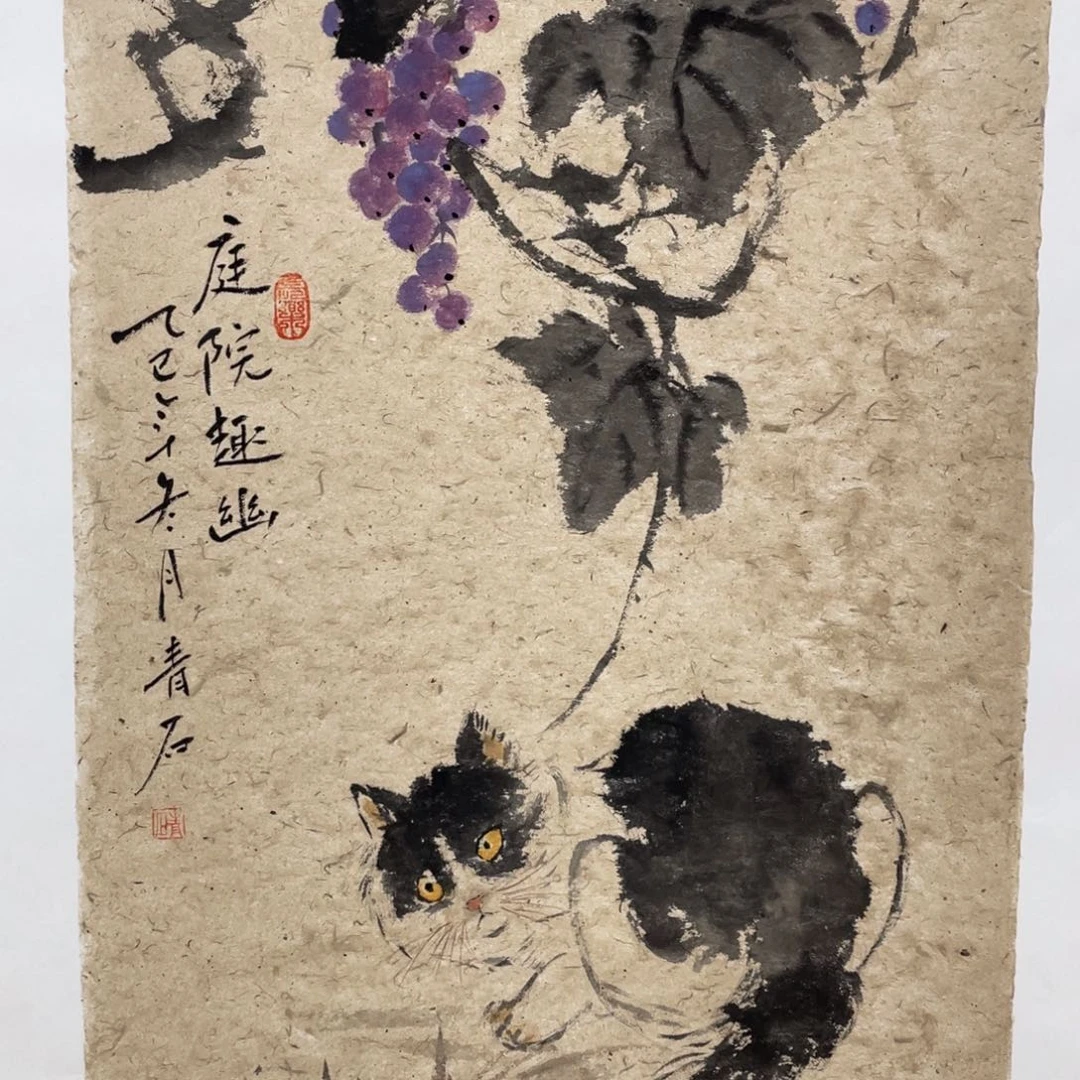 庭院趣幽
乙巳年冬月青石